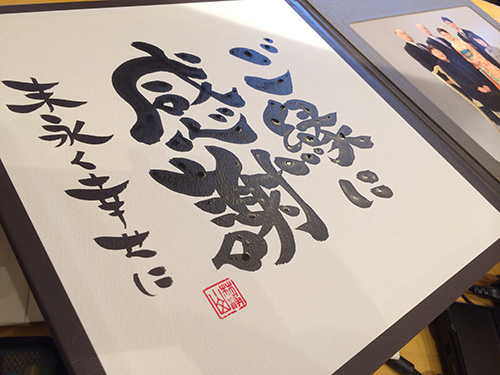 ご縁に
感謝
末永く幸せに